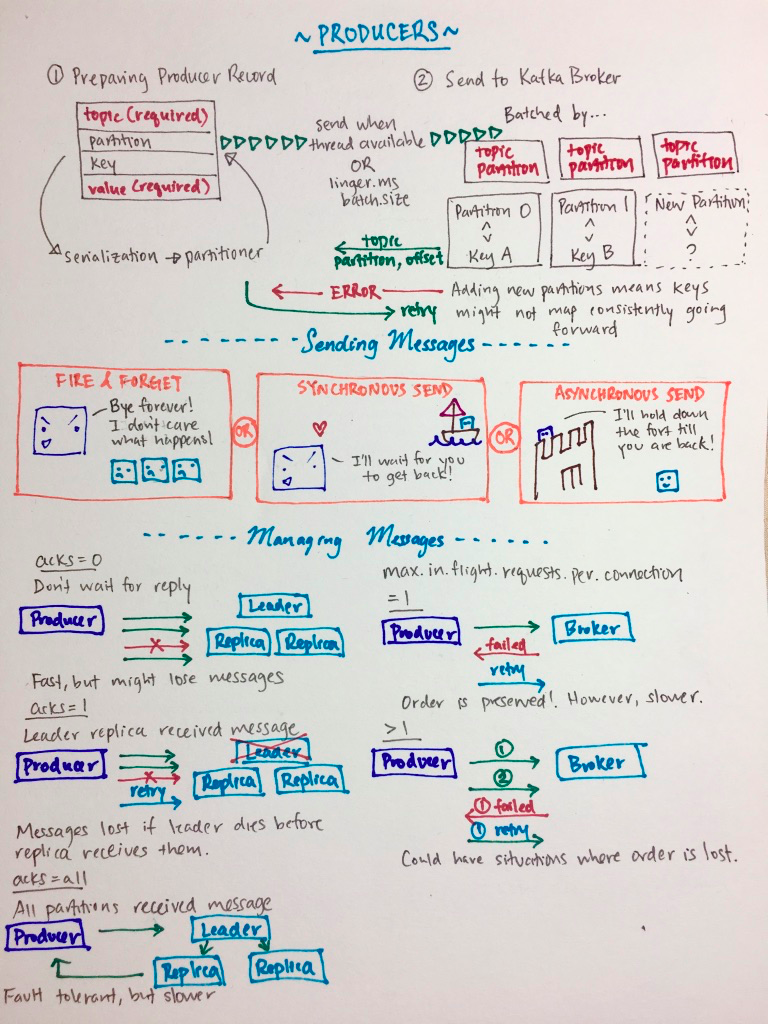 ~ PRODUCERS ~
① Preparing Producer Record
topic (required)
partition
key
value (required)
serialization → partitioner
send when
thread available
OR
linger.ms
batch.size
② Send to Kafka Broker
Batched by...
topic
partition
topic
partition
topic
partition
Partition 0
Key A
Partition 1
Key B
New Partition
?
topic
partition, offset
ERROR
retry
Adding new partitions means keys
might not map consistently going
forward
Sending Messages
FIRE & FORGET
Bye forever!
I don't care
what happens!
OR
SYNCHRONOUS SEND
I'll wait for you
to get back!
OR
ASYNCHRONOUS SEND
I'll hold down
the fort till
you are back!
Managing Messages
acks = 0
Don't wait for reply
Producer
Leader
Replica
Replica
Fast, but might lose messages
acks = 1
Leader replica received message
Producer
retry
Leader
Replica
Replica
Messages lost if leader dies before
replica receives them.
acks = all
All partitions received message
Producer
Leader
Replica
Replica
Fault tolerant, but slower
max.in.flight.requests.per.connection
= 1
Producer
Broker
failed
retry
Order is preserved! However, slower.
> 1
Producer
①
②
① failed
① retry
Broker
Could have situations where order is lost.